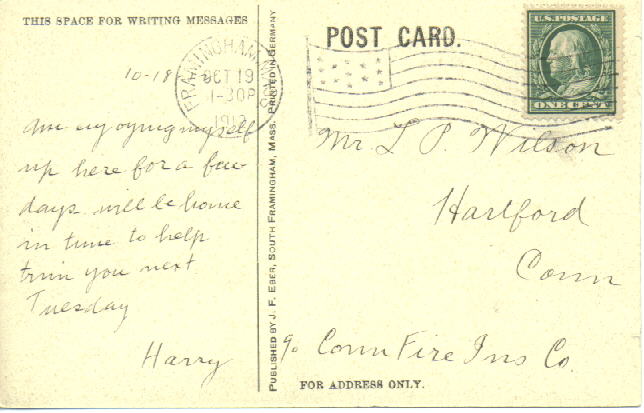 THIS SPACE FOR WRITING MESSAGES
POST CARD.
U.S. POSTAGE
ONE CENT
FRAMINGHAM
OCT 19
1-30P
10-18
Am enjoying myself
up here for a few
days will be home
in time to help
trim you next
Tuesday
Harry
PUBLISHED BY J. F. EBER, SOUTH FRAMINGHAM, MASS. PRINTED IN GERMANY
Mr L P. Wilson
Hartford
Conn
c/o Conn Fire Ins Co.
FOR ADDRESS ONLY.